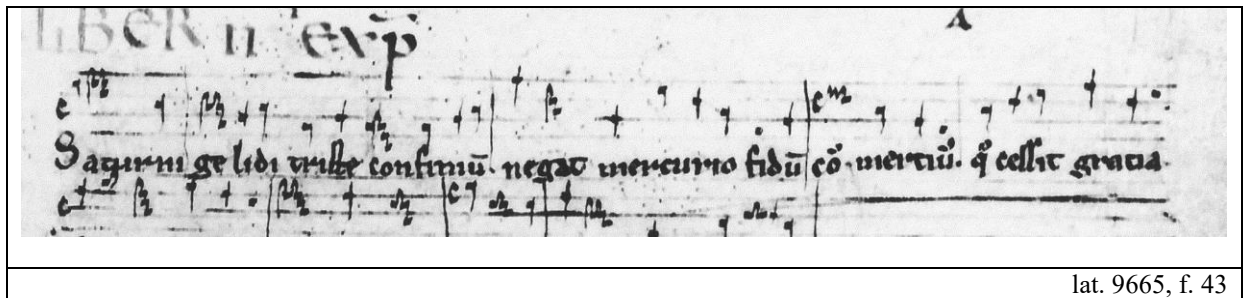 LIBER II exp̄
A
Saturni ge lidi triste confiniū. negat mercurio fidū cō mertiū. q̊ cessit gratia
lat. 9665, f. 43